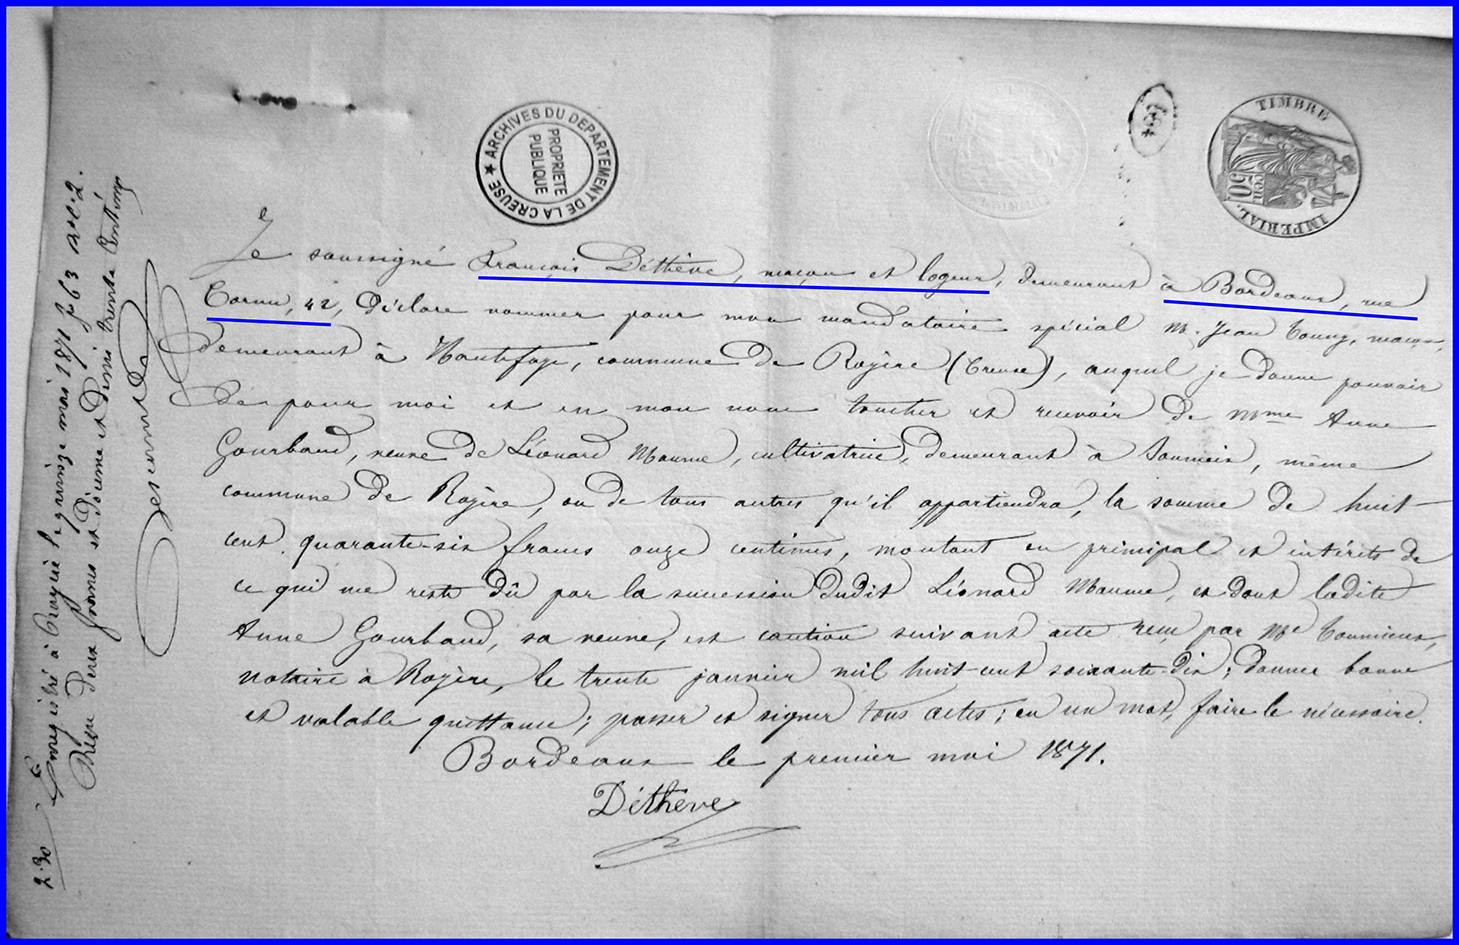 ARCHIVES DU DEPARTEMENT DE LA CREUSE ★
PROPRIETE
PUBLIQUE
TIMBRE IMPERIAL
50 cen
Je soussigné François Déthève, maçon et logeur, demeurant à Bordeaux, rue
Cornu, 42, Déclare nommer pour mon mandataire spécial M. Jean Couny, maçon,
demeurant à Hautefaye, commune de Royère (Creuse), auquel je donne pouvoir
De pour moi et en mon nom toucher et recevoir de Mme Anne
Gourbaud, veuve de Léonard Maume, cultivatrice, demeurant à Soumeix, même
commune de Royère, ou de tous autres qu'il appartiendra, la somme de huit
cent quarante-six francs onze centimes, montant en principal et intérêts de
ce qui me reste dû par la succession dudit Léonard Maume, et dont ladite
Anne Gourbaud, sa veuve, est caution suivant acte reçu par Me Toumieux,
notaire à Royère, le trente janvier mil huit-cent soixante-dix; donner bonne
et valable quittance; passer et signer tous actes; en un mot, faire le nécessaire.
Bordeaux le premier mai 1871.
Déthève
Enregistré à Royère le quinze mai 1871 fo 63 Ro C. 2.
Reçu deux francs et décime et demi trente centimes
2.30